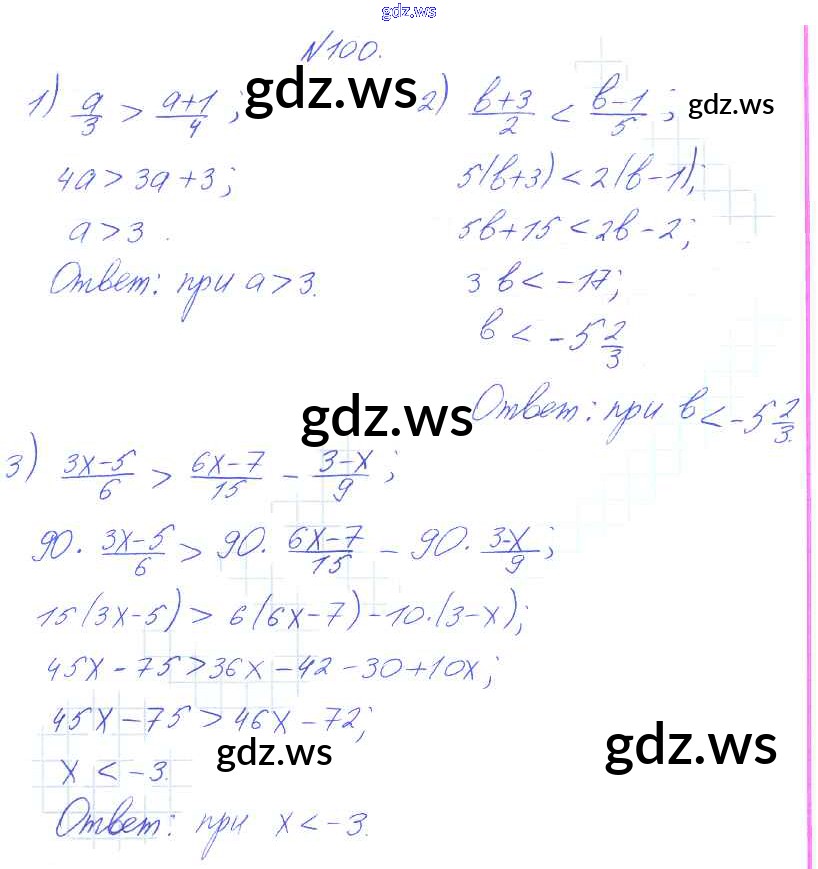 gdz.ws
№100.
1) a/3 > (a+1)/4 ;
4a > 3a + 3;
a > 3.
Ответ: при a > 3.
gdz.ws
2) (b+3)/2 < (b-1)/5 ;
gdz.ws
5(b+3) < 2(b-1);
5b+15 < 2b-2;
3b < -17;
b < -5 2/3
Ответ: при b < -5 2/3.
gdz.ws
3) (3x-5)/6 > (6x-7)/15 - (3-x)/9 ;
90 · (3x-5)/6 > 90 · (6x-7)/15 - 90 · (3-x)/9 ;
15(3x-5) > 6(6x-7) - 10·(3-x);
45x - 75 > 36x - 42 - 30 + 10x;
45x - 75 > 46x - 72;
x < -3.
gdz.ws
gdz.ws
Ответ: при x < -3.